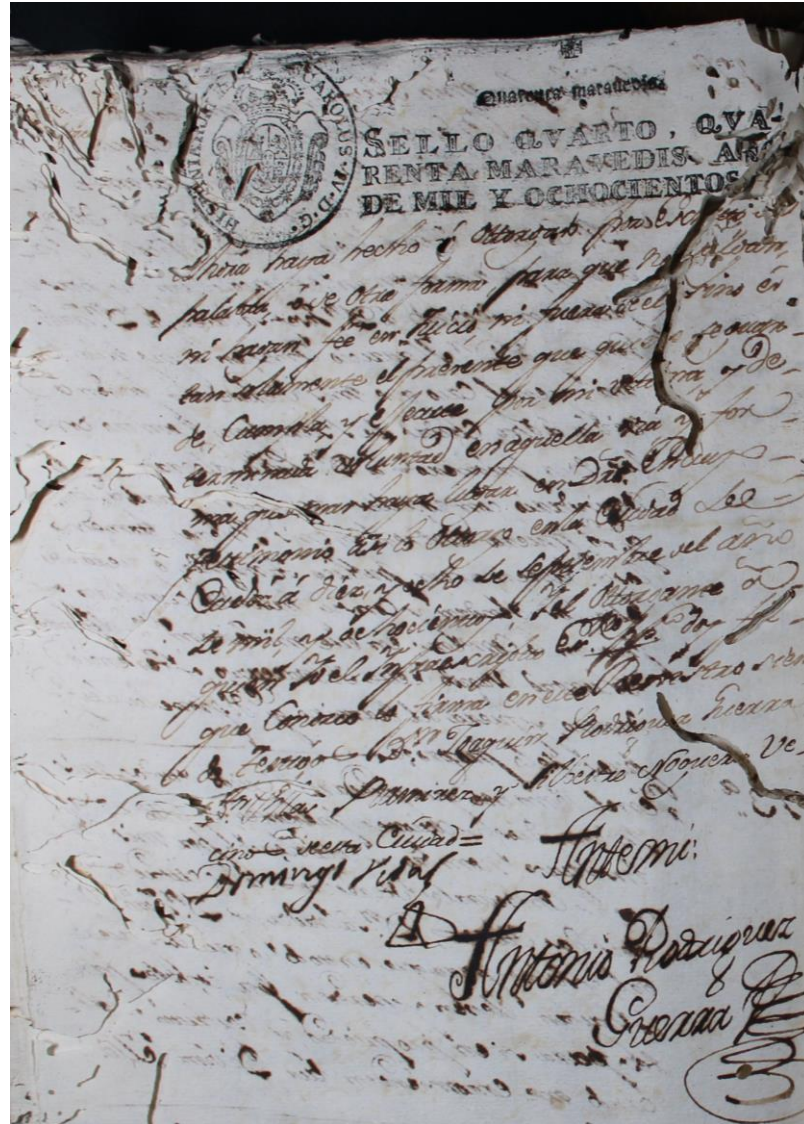 HISPANIARUM
CAROLUS·IV·D·G·
Quarenta maravedis.
SELLO QVARTO, QVA-
RENTA MARAVEDIS, AÑO
DE MIL Y OCHOCIENTOS.
Ahora haya hecho ó Otorgado por Escrito de
palabra ó de otra forma para que no valgan
ni hagan fee en Juicio ni fuera de el, sino es
tan solamente el presente que quiero se guar-
de, Cumpla, y execute por mi ultima y de-
terminada Voluntad en aquella via y for
ma que mas haya lugar en Dro. En cuyo
testimonio asi lo Otorgo en la Ciudad de
á diez y ocho de Septiembre del año
de mil y ochocientos, y el Otorgante á
quien Yo el Infraescripto Es.no doy fe
que Conozco lo firma en este Registro sien
do Testigos D.n Joaquin Rodriguez Guerra
Ramirez y Noguera Ve-
cinos de esta Ciudad=
Domingo Vidal
Antemi:
Antonio Rodriguez
Guerra